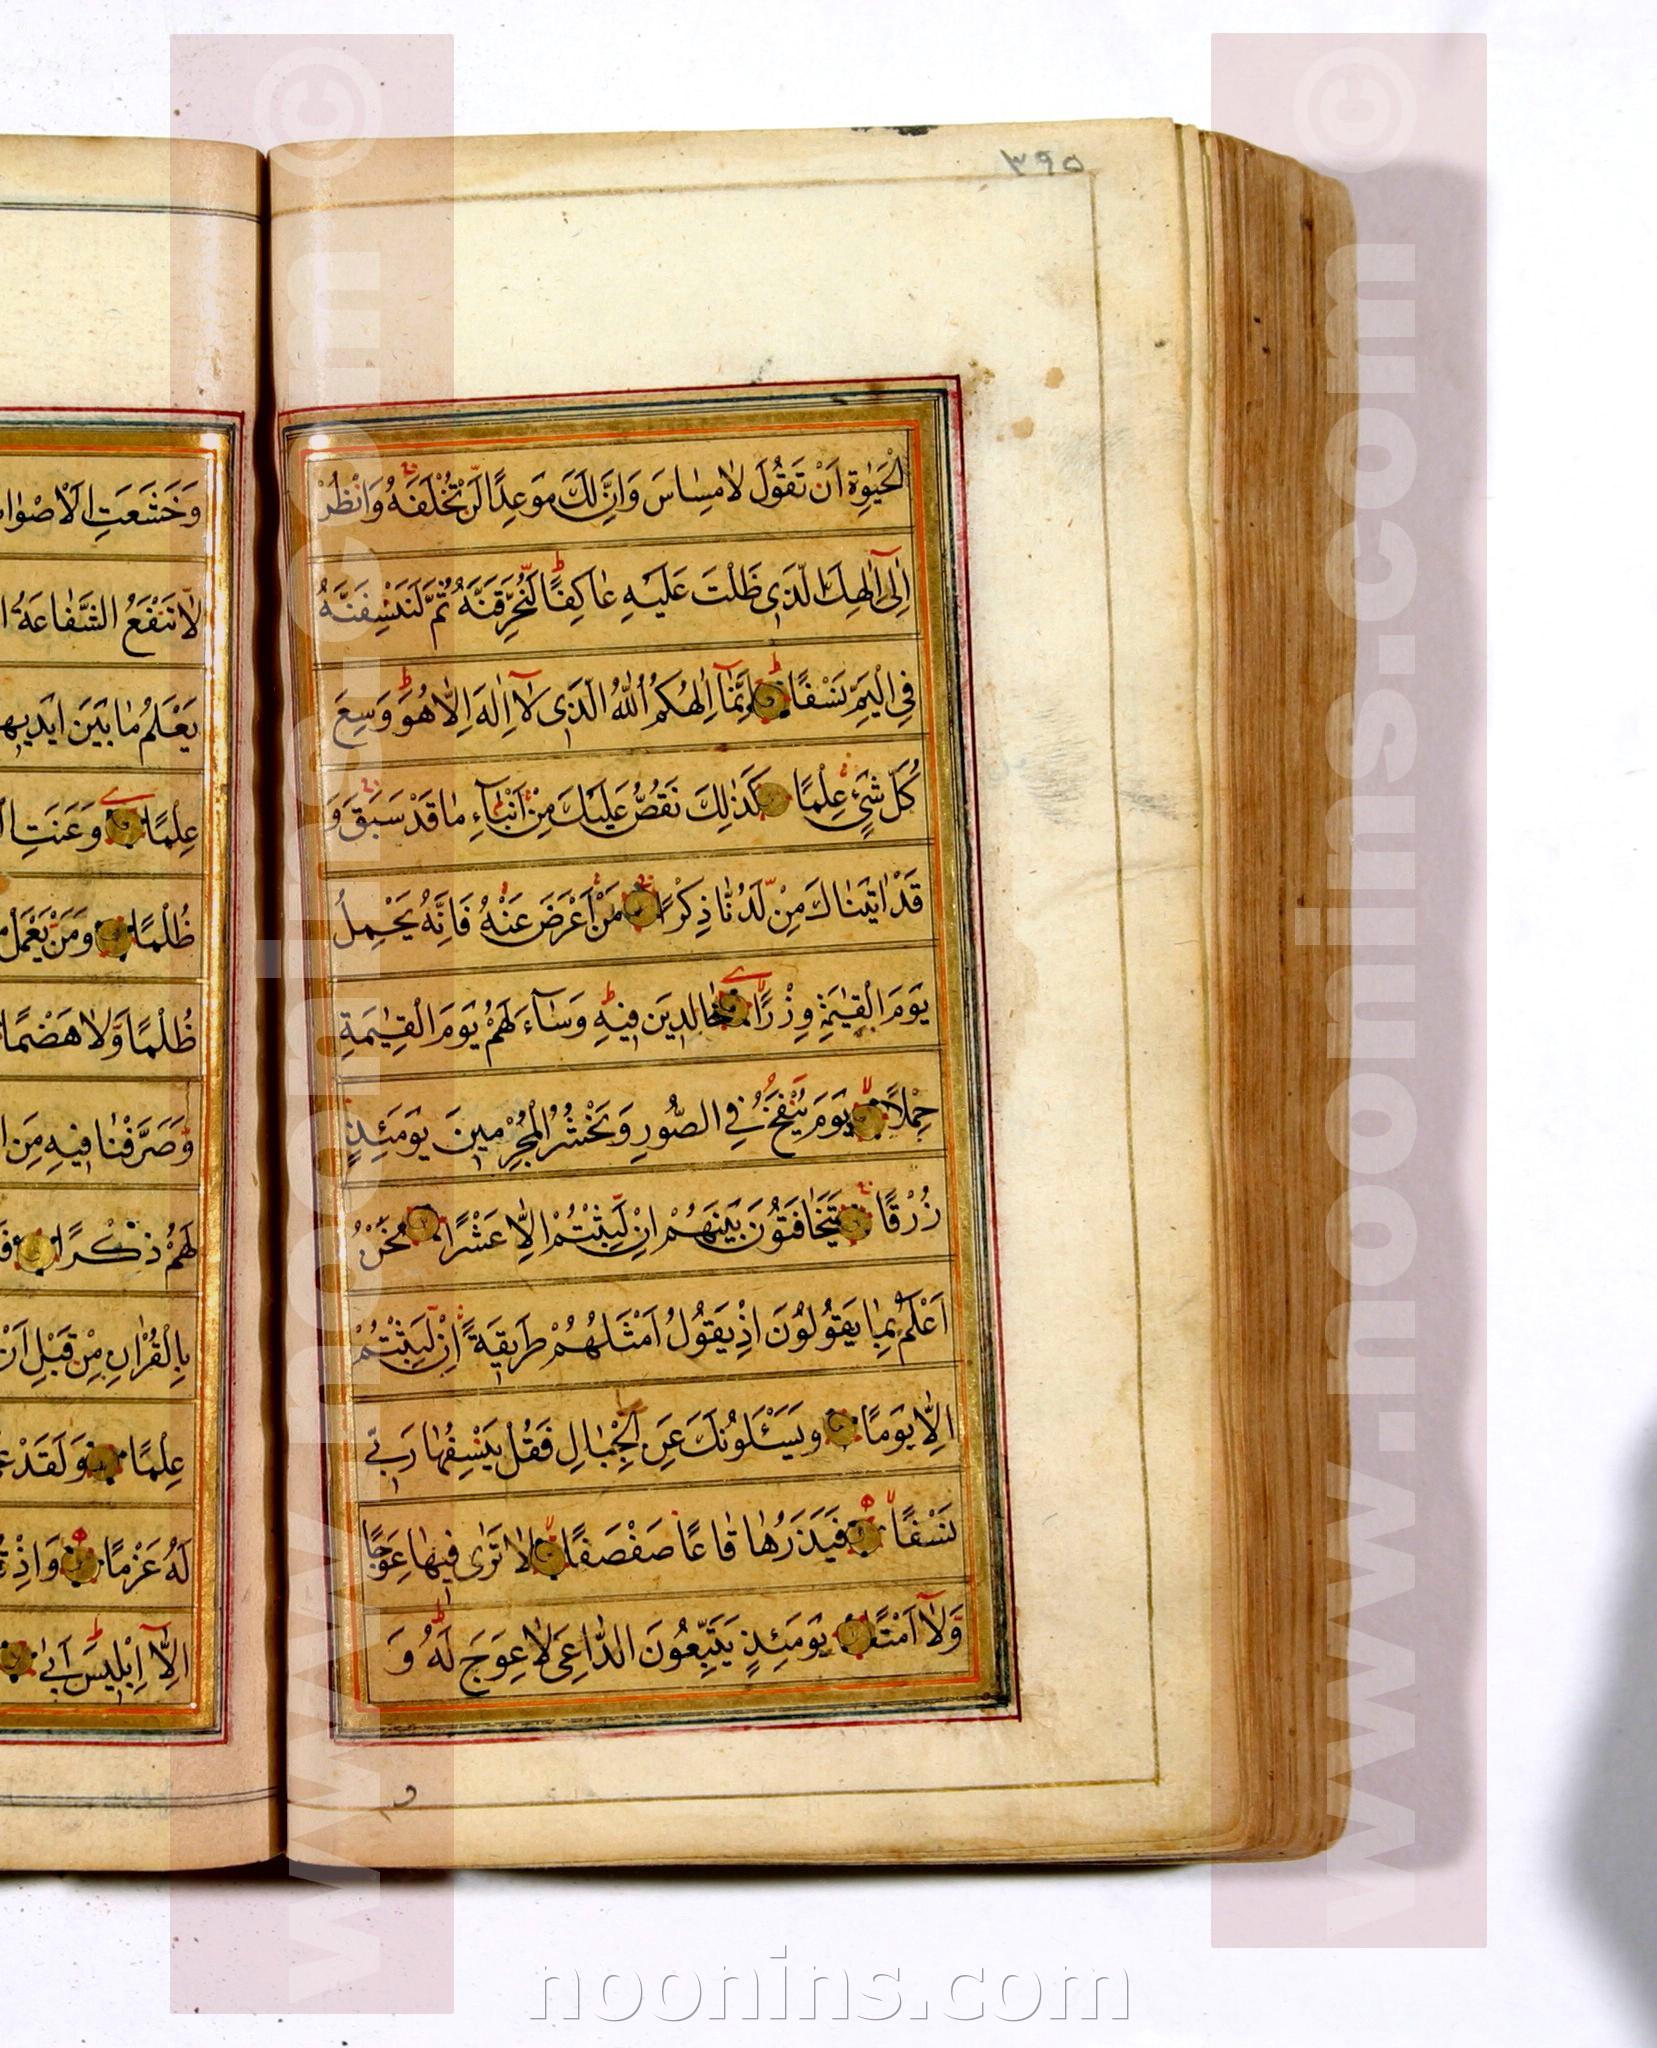 ٣٩٥
الْحَيٰوةِ اَنْ تَقُولَ لٰا مِسٰاسَ وَاِنَّ لَكَ مَوْعِدًا لَنْ تُخْلَفَهُ وَانْظُرْ
اِلٰى اِلٰهِكَ الَّذٖى ظَلْتَ عَلَيْهِ عٰاكِفًا لَنُحَرِّقَنَّهُ ثُمَّ لَنَنْسِفَنَّهُ
فِى الْيَمِّ نَسْفًا اِنَّمٰٓا اِلٰهُكُمُ اللّٰهُ الَّذٖى لٰٓا اِلٰهَ اِلّٰا هُوَ وَسِعَ
كُلَّ شَىْءٍ عِلْمًا كَذٰلِكَ نَقُصُّ عَلَيْكَ مِنْ اَنْبٰٓاءِ مٰا قَدْ سَبَقَ وَ
قَدْ اٰتَيْنٰاكَ مِنْ لَدُنّٰا ذِكْرًا مَنْ اَعْرَضَ عَنْهُ فَاِنَّهُ يَحْمِلُ
يَوْمَ الْقِيٰمَةِ وِزْرًا خٰالِدٖينَ فٖيهِ وَسٰٓاءَ لَهُمْ يَوْمَ الْقِيٰمَةِ
حِمْلًا يَوْمَ يُنْفَخُ فِى الصُّورِ وَنَحْشُرُ الْمُجْرِمٖينَ يَوْمَئِذٍ
زُرْقًا يَتَخٰافَتُونَ بَيْنَهُمْ اِنْ لَبِثْتُمْ اِلّٰا عَشْرًا نَحْنُ
اَعْلَمُ بِمٰا يَقُولُونَ اِذْ يَقُولُ اَمْثَلُهُمْ طَرٖيقَةً اِنْ لَبِثْتُمْ
اِلّٰا يَوْمًا وَيَسْئَلُونَكَ عَنِ الْجِبٰالِ فَقُلْ يَنْسِفُهٰا رَبّٖى
نَسْفًا فَيَذَرُهٰا قٰاعًا صَفْصَفًا لٰا تَرٰى فٖيهٰا عِوَجًا
وَلٰٓا اَمْتًا يَوْمَئِذٍ يَتَّبِعُونَ الدّٰاعِىَ لٰا عِوَجَ لَهُ وَ
وَخَشَعَتِ الْاَصْوٰا
لٰا تَنْفَعُ الشَّفٰاعَةُ ا
يَعْلَمُ مٰا بَيْنَ اَيْدٖيهِ
عِلْمًا وَعَنَتِ ا
ظُلْمًا وَمَنْ يَعْمَلْ
ظُلْمًا وَلٰا هَضْمًا
وَصَرَّفْنٰا فٖيهِ مِنَ ا
لَهُمْ ذِكْرًا فَ
بِالْقُرْاٰنِ مِنْ قَبْلِ اَنْ
عِلْمًا وَلَقَدْ عَ
لَهُ عَزْمًا وَاِذْ
اِلّٰٓا اِبْلٖيسَ اَبٰى
© www.noonins.com
© www.noonins.com
noonins.com